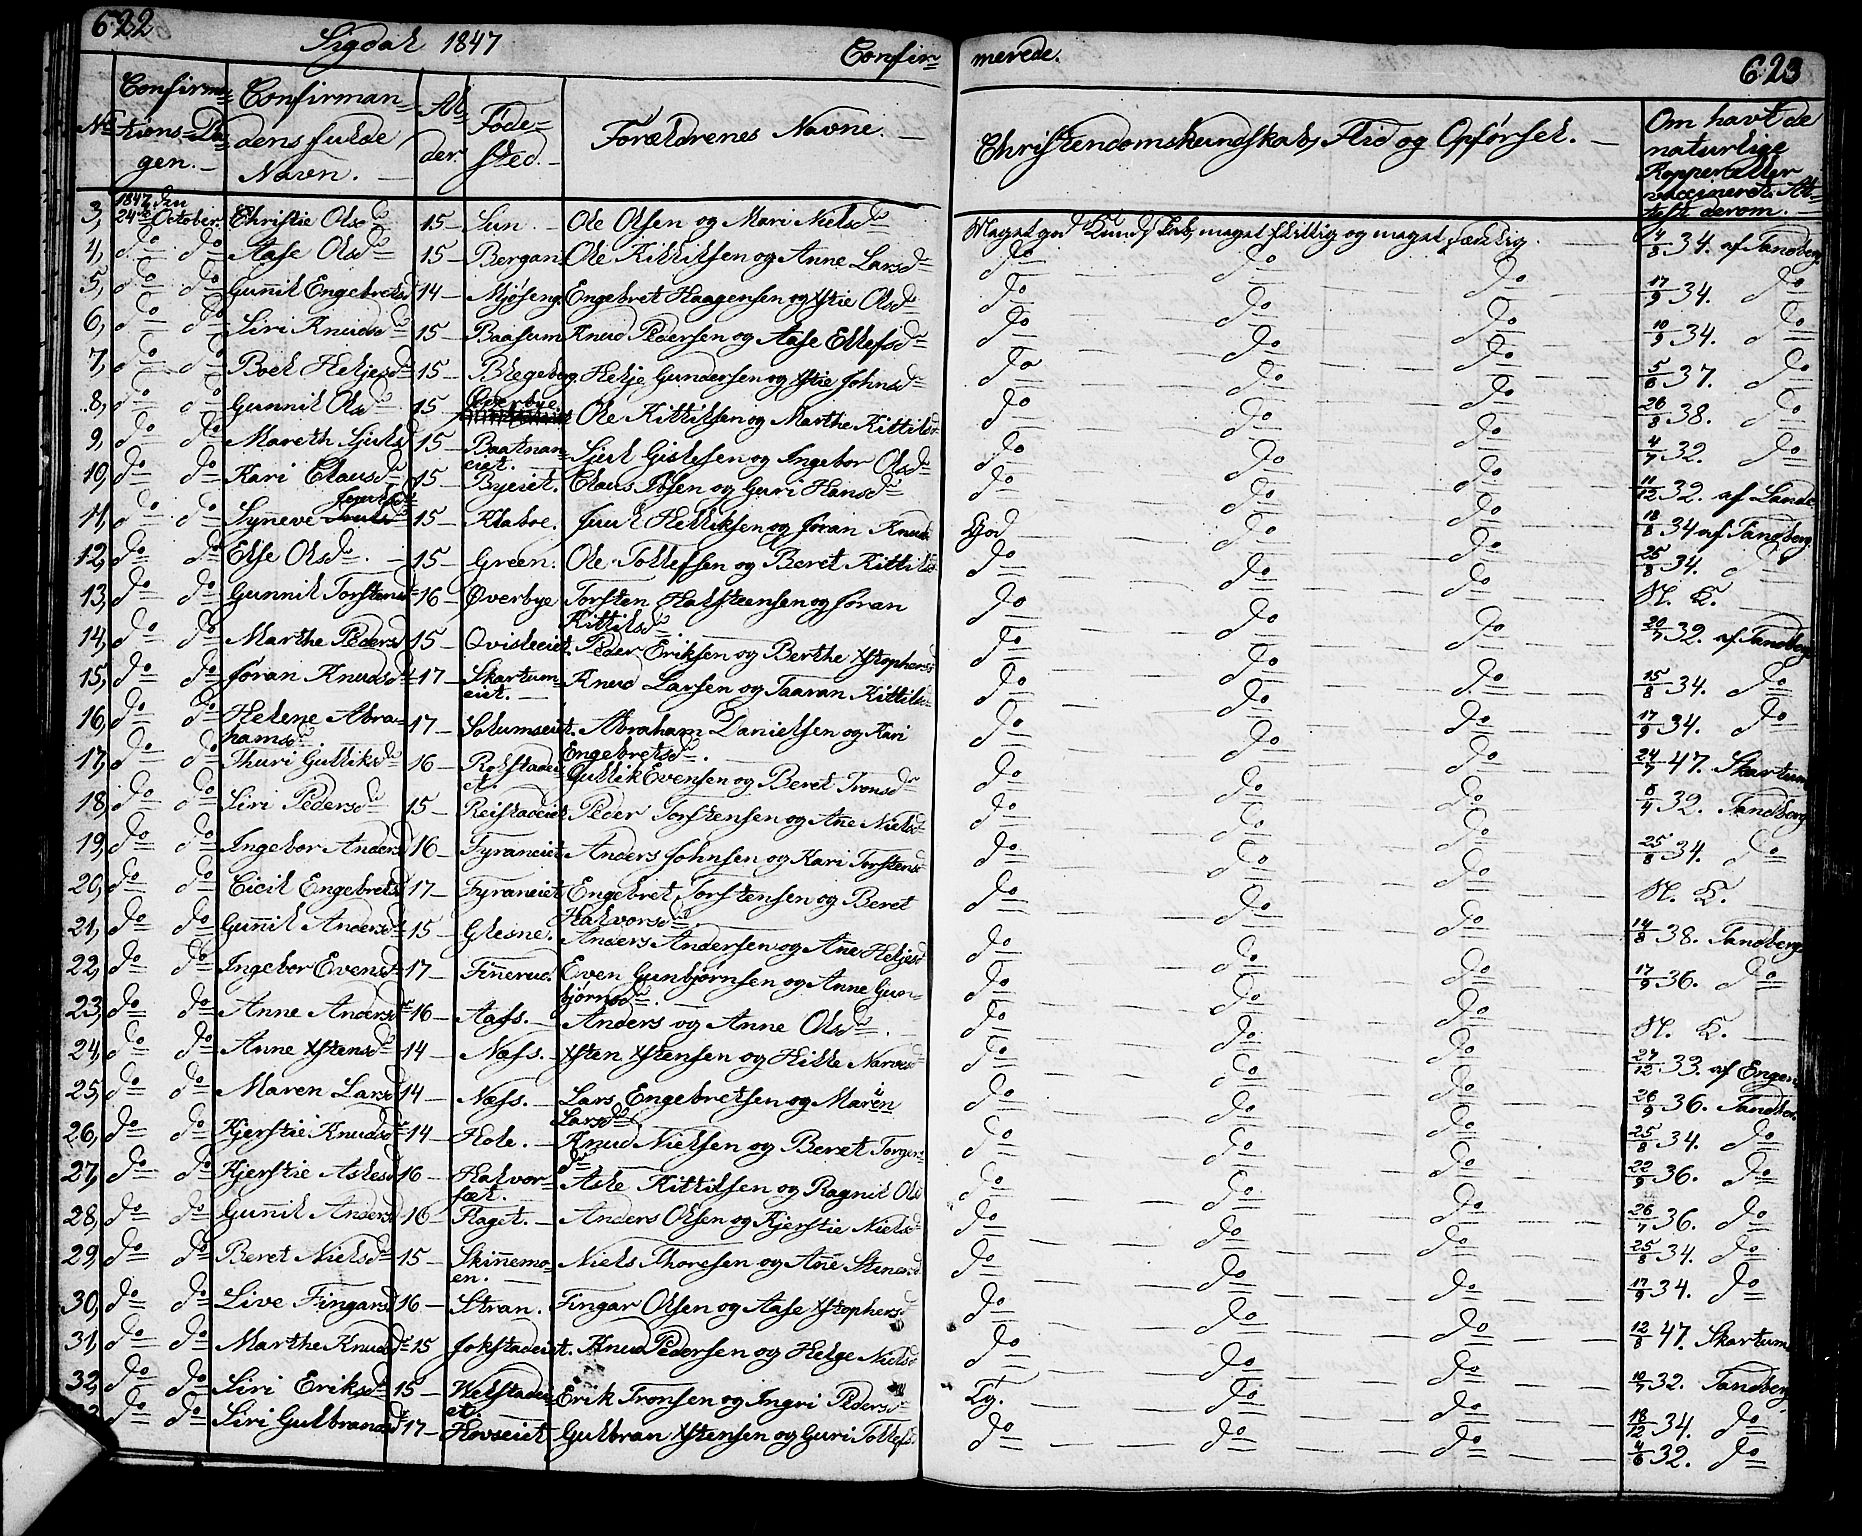 622
Sigdal 1847
Confir=
merede.
623
No
Confirma=
tions-Da=
gen.
Confirman=
dens fulde
Navn.
Al=
der.
Føde=
sted.
Forældrenes Navne.
Christendomskundskab, Flid og Opførsel.
Om havt de
naturlige
Kopper eller
vaccineret. At=
test derom.
1847 den
3, 24de October. Christie Olsd. 15 Sun. Ole Olsen og Mari Nielsd. Meget god Kundskab, meget flittig og meget sædelig. 4/8 34. af Tandberg
4, do do Aase Olsd. 15 Bergan. Ole Kittilsen og Anne Larsd. do do do 17/9 34. do
5, do do Gunnil Engebretsd. 14 Mjøseng. Engebret Haagensen og Xstie Olsd. do do do 10/9 34. do
6, do do Siri Knudsd. 15 Baasum Knud Pedersen og Aase Ellefsd. do do do 5/8 37. do
7, do do Boel Heljesd. 15 Blegeberg. Helje Gundersen og Xstie Johnsd. do do do 26/8 38. do
8, do do Gunnil Olsd. 15 Overbye Ole Kittilsen og Marthe Kittilsd. do do do 4/7 32. do
9, do do Mareth Sjulsd. 15 Baatnan=
eiet. Sjul Gislesen og Ingebor Olsd. do do do 11/12 32. af Lande
10, do do Kari Clausd. 15 Byeiet. Claus Ibsen og Guri Hansd. do do do 18/8 34 af Tandberg.
11, do do Syneve Juulsd. 15 Klaboe. Juul Hellik sen og Jøran Knuds God do do 25/8 34. do
12, do do Else Olsd. 15 Green. Ole Tollefsen og Beret Kittilsd. do do do N. K.
13, do do Gunnil Torstensd. 16 Øverbye Torsten Halsteensen og Jøran
Kittilsd. do do do 20/7 32. af Tandberg
14, do do Marthe Pedersd. 15 Qvisleeiet. Peder Eriksen og Berthe Xstophersd. do do do 15/8 34. do
15, do do Jøran Knudsd. 17 Skartum=
eiet. Knud Larsen og Taaran Kittilsd. do do do 17/9 34. do
16, do do Helene Abra=
hamsd. 17 Solumseiet. Abraham Danielsen og Kari
Engebretsd. do do do 24/7 47. Skartum
17, do do Thuri Gulliksd. 16 Rolstadei=
et. Gullik Evensen og Beret Tronsd. do do do 8/4 32. Tandberg
18, do do Siri Pedersd. 15 Reistadeiet. Peder Torstensen og Ane Nielsd. do do do 25/8 34. do
19, do do Ingebor Andersd. 16 Fyraneiet. Anders Johnsen og Kari Torstensd. do do do N. K.
20, do do Cicil Engebretsd. 17 Fyraneiet Engebret Torstensen og Beret
Halvorsd. do do do 14/8 38. Tandberg
21, do do Gunnil Andersd. 15 Glesne. Anders Andersen og Ane Heljesd. do do do 17/9 36. do
22, do do Ingebor Evensd. 17 Finerud. Even Gunbjørnsen og Anne Gun=
bjørnsd. do do do N. K.
23, do do Anne Andersd. 16 Aass. Anders og Anne Olsd. do do do 27/12 33. af Engen
24, do do Anne Xstensd. 14 Næss. Xsten Xstensen og Hille Narvesd. do do do 26/9 36. Tandber.
25, do do Maren Larsd. 14 Næss. Lars Engebretsen og Maren
Larsd. do do do 25/8 34. do
26, do do Kjerstie Knudsd. 14 Hole. Knud Nielsen og Beret Torgers=
d. do do do 22/9 36. do
27, do do Kjerstie Aslesd. 16 Halvor=
sæt. Asle Kittilsen og Ragnil Ols do do do 26/7 36. do
28, do do Gunnil Andersd. 16 Flaget. Anders Olsen og Kjerstie Nielsd. do do do 25/8 34. do
29, do do Beret Nielsd. 15 Skinnemo=
en. Niels Thoresen og Ane Stenersd. do do do 17/9 34. do
30, do do Live Fingarsd. 16 Stran. Fingar Olsen og Aase Xstophersd. do do do 12/8 47. Skartum
31, do do Marthe Knudsd. 15 Jokstadeiet. Knud Pedersen og Helge Nielsd. do do do 10/7 32. Tandberg
32, do do Siri Eriksd. 15 Velstadei=
et. Erik Tronsen og Ingri Pedersd. Tg. do do 18/12 34. do
do do Siri Gulbransd. 17 Hovseiet Gulbran Xstensen og Guri Tollefs. do do do 4/6 32. do